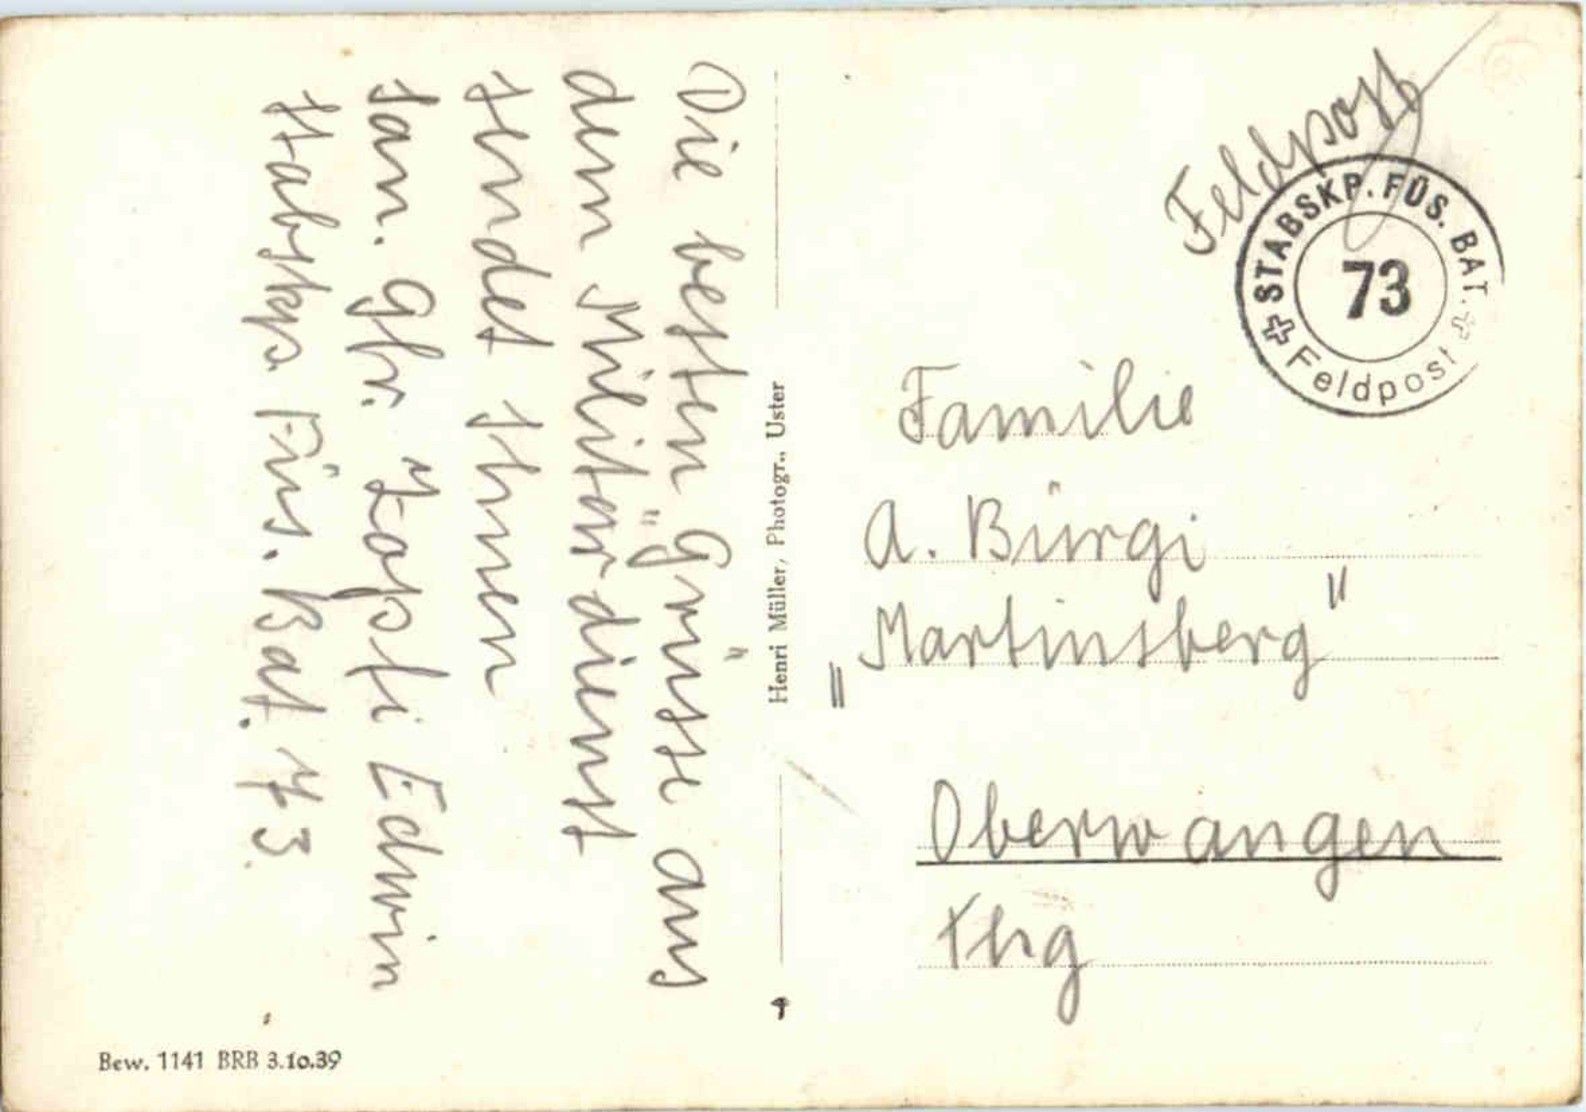 Die besten Grüsse aus
dem Militärdienst
sendet Ihnen
San. Gfr. Zopfi Edwin
Stabskp. Füs. Bat. 73
Bew. 1141 BRB 3.10.39
Henri Müller, Photogr., Uster
Feldpost
STABSKP. FÜS. BAT.
73
Feldpost
Familie
A. Bürgi
„Martinsberg"
Oberwangen
Thg